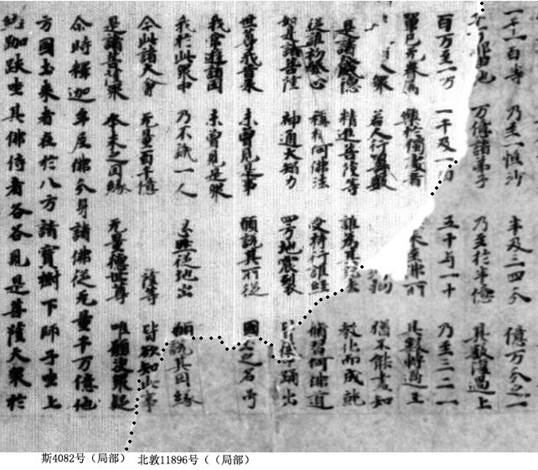 一千一百等 乃至一恒沙 半及三四分 億万分之一
由他 万億諸弟子 乃至於半億 其數復過上
百万至一万 一千及一百 五十与一十 乃至三二一
單己无眷屬 樂於獨處者 來至佛所 其數轉過上
大眾 若人行籌數 劫 猶不能盡知
是諸大威德 精進菩薩等 誰為其說法 教化而成就
從誰初發心 稱揚何佛法 受持行誰經 修習何佛道
如是諸菩薩 神通大智力 四方地震裂 皆從中踊出
世尊我昔來 未曾見是事 願說其所從 國土之名号
我常遊諸國 未曾見是眾
我於此眾中 乃不識一人 忽然從地出 願說其因緣
今此諸大會 无量百千億 薩等 皆欲知此事
是諸菩薩眾 本末之因緣 无量德世尊 唯願決眾疑
尒時釋迦牟尼佛分身諸佛從无量千万億他
方國土來者在於八方諸寶樹下師子坐上
結跏趺坐其佛侍者各各見是菩薩大眾於
斯4082号（局部） 北敦11896号（（局部）